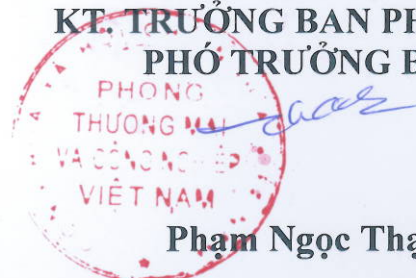 KT. TRƯỞNG BAN PH
PHÓ TRƯỞNG B
PHÒNG
THƯƠNG MẠI
VÀ CÔNG NGHIỆP
VIỆT NAM
Phạm Ngọc Thạ